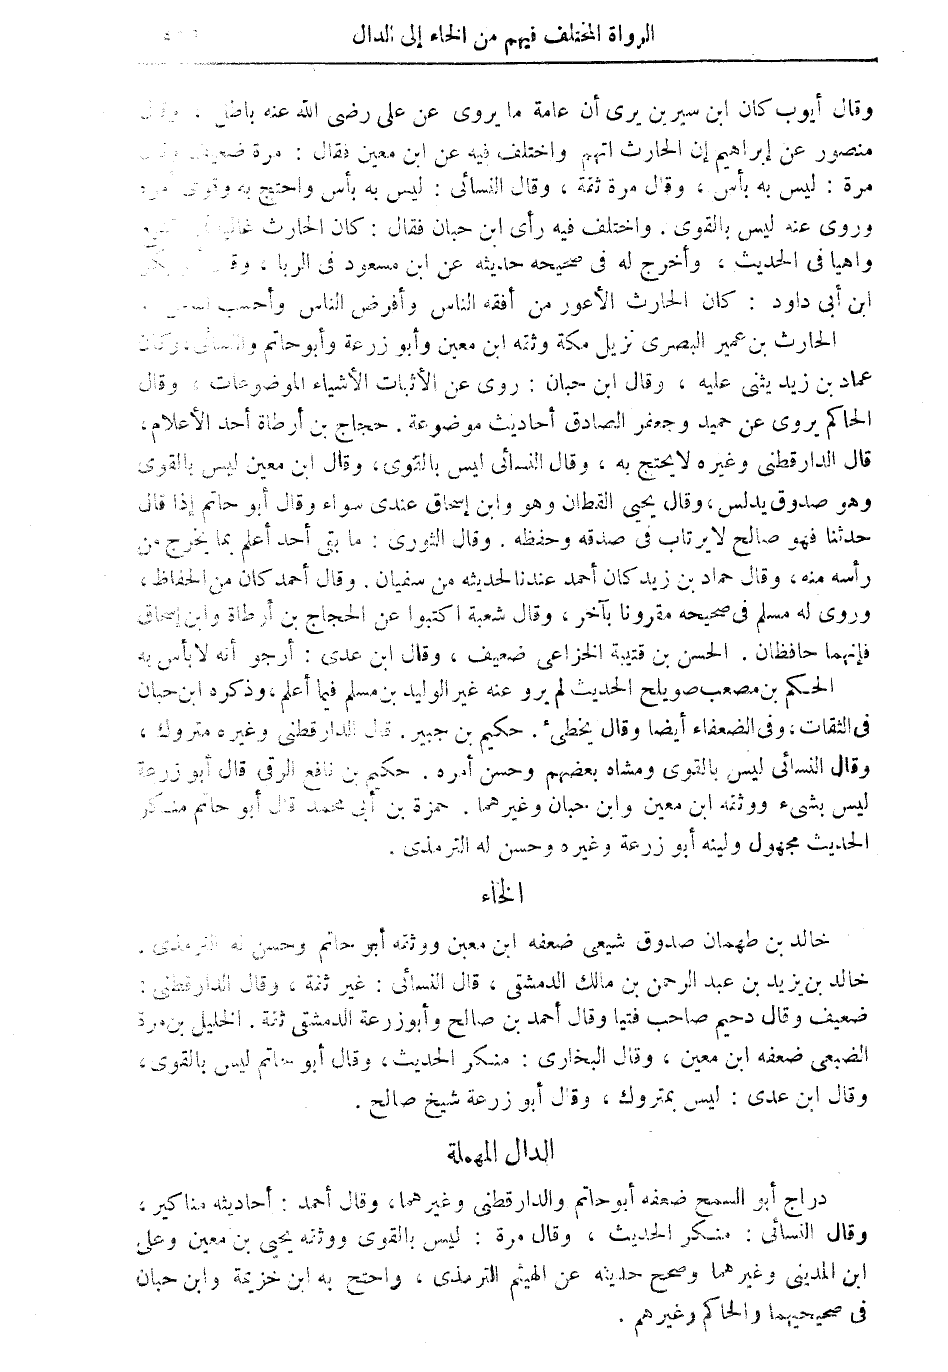 الرواة المختلف فيهم من الخاء إلى الدال
وقال أيوب كان ابن سيرين يرى أن عامة ما يروى عن على رضى الله عنه باطل ، وقال
منصور عن إبراهيم إن الحارث اتهم واختلف فيه عن ابن معين فقال : مرة ضعيف وقال
مرة : ليس به بأس ، وقال مرة ثقة ، وقال النسائى : ليس به بأس واحتج به وقوى أمره
وروى عنه ليس بالقوى . واختلف فيه رأى ابن حبان فقال : كان الحارث غاليا فى التشيع
واهيا فى الحديث ، وأخرج له فى صحيحه حديثه عن ابن مسعود فى الربا ، وقال أبو بكر
ابن أبى داود : كان الحارث الأعور من أفقه الناس وأفرض الناس وأحسب الناس .
الحارث بن عمير البصرى نزيل مكة وثقه ابن معين وأبو زرعة وأبو حاتم والنسائى ، وكان
عماد بن زيد يثنى عليه ، وقال ابن حبان : روى عن الأثبات الأشياء الموضوعات ، وقال
الحاكم يروى عن حميد وجعفر الصادق أحاديث موضوعة . حجاج بن أرطاة أحد الأعلام ،
قال الدارقطنى وغيره لا يحتج به ، وقال النسائى ليس بالقوى ، وقال ابن معين ليس بالقوى
وهو صدوق يدلس ، وقال يحيى القطان وهو وابن إسحاق عندى سواء وقال أبو حاتم إذا قال
حدثنا فهو صالح لا يرتاب فى صدقه وحفظه . وقال الثورى : ما بقى أحد أعلم بما يخرج من
رأسه منه ، وقال حماد بن زيد كان أحمد عندنا لحديثه من سفيان . وقال أحمد كان من الحفاظ ،
وروى له مسلم فى صحيحه مقرونا بآخر ، وقال شعبة اكتبوا عن الحجاج بن أرطاة وابن إسحاق
فإنهما حافظان . الحسن بن قتيبة الخزاعى ضعيف ، وقال ابن عدى : أرجو أنه لا بأس به
الحكم بن مصعب صويلح الحديث لم يرو عنه غير الوليد بن مسلم فيما أعلم ، وذكره ابن حبان
فى الثقات ، وفى الضعفاء أيضا وقال يخطىء . حكيم بن جبير . قال الدارقطنى وغيره متروك ،
وقال النسائى ليس بالقوى ومشاه بعضهم وحسن أمره . حكيم بن نافع الرقى قال أبو زرعة
ليس بشىء ووثقه ابن معين وابن حبان وغيرهما . حمزة بن أبى محمد قال أبو حاتم منكر
الحديث مجهول ولينه أبو زرعة وغيره وحسن له الترمذى .
الخاء
خالد بن طهمان صدوق شيعى ضعفه ابن معين ووثقه أبو حاتم وحسن له الترمذى .
خالد بن يزيد بن عبد الرحمن بن مالك الدمشقى ، قال النسائى : غير ثقة ، وقال الدارقطنى :
ضعيف وقال دحيم صاحب فتيا وقال أحمد بن صالح وأبو زرعة الدمشقى ثقة . الخليل بن مرة
الضبعى ضعفه ابن معين ، وقال البخارى : منكر الحديث ، وقال أبو حاتم ليس بالقوى ،
وقال ابن عدى : ليس بمتروك ، وقال أبو زرعة شيخ صالح .
الدال المهملة
دراج أبو السمح ضعفه أبو حاتم والدارقطنى وغيرهما ، وقال أحمد : أحاديثه مناكير ،
وقال النسائى : منكر الحديث ، وقال مرة : ليس بالقوى ووثقه يحيى بن معين وعلى
ابن المدينى وغيرهما وصحح حديثه عن الهيثم الترمذى ، واحتج به ابن خزيمة وابن حبان
فى صحيحيهما والحاكم وغيرهم .